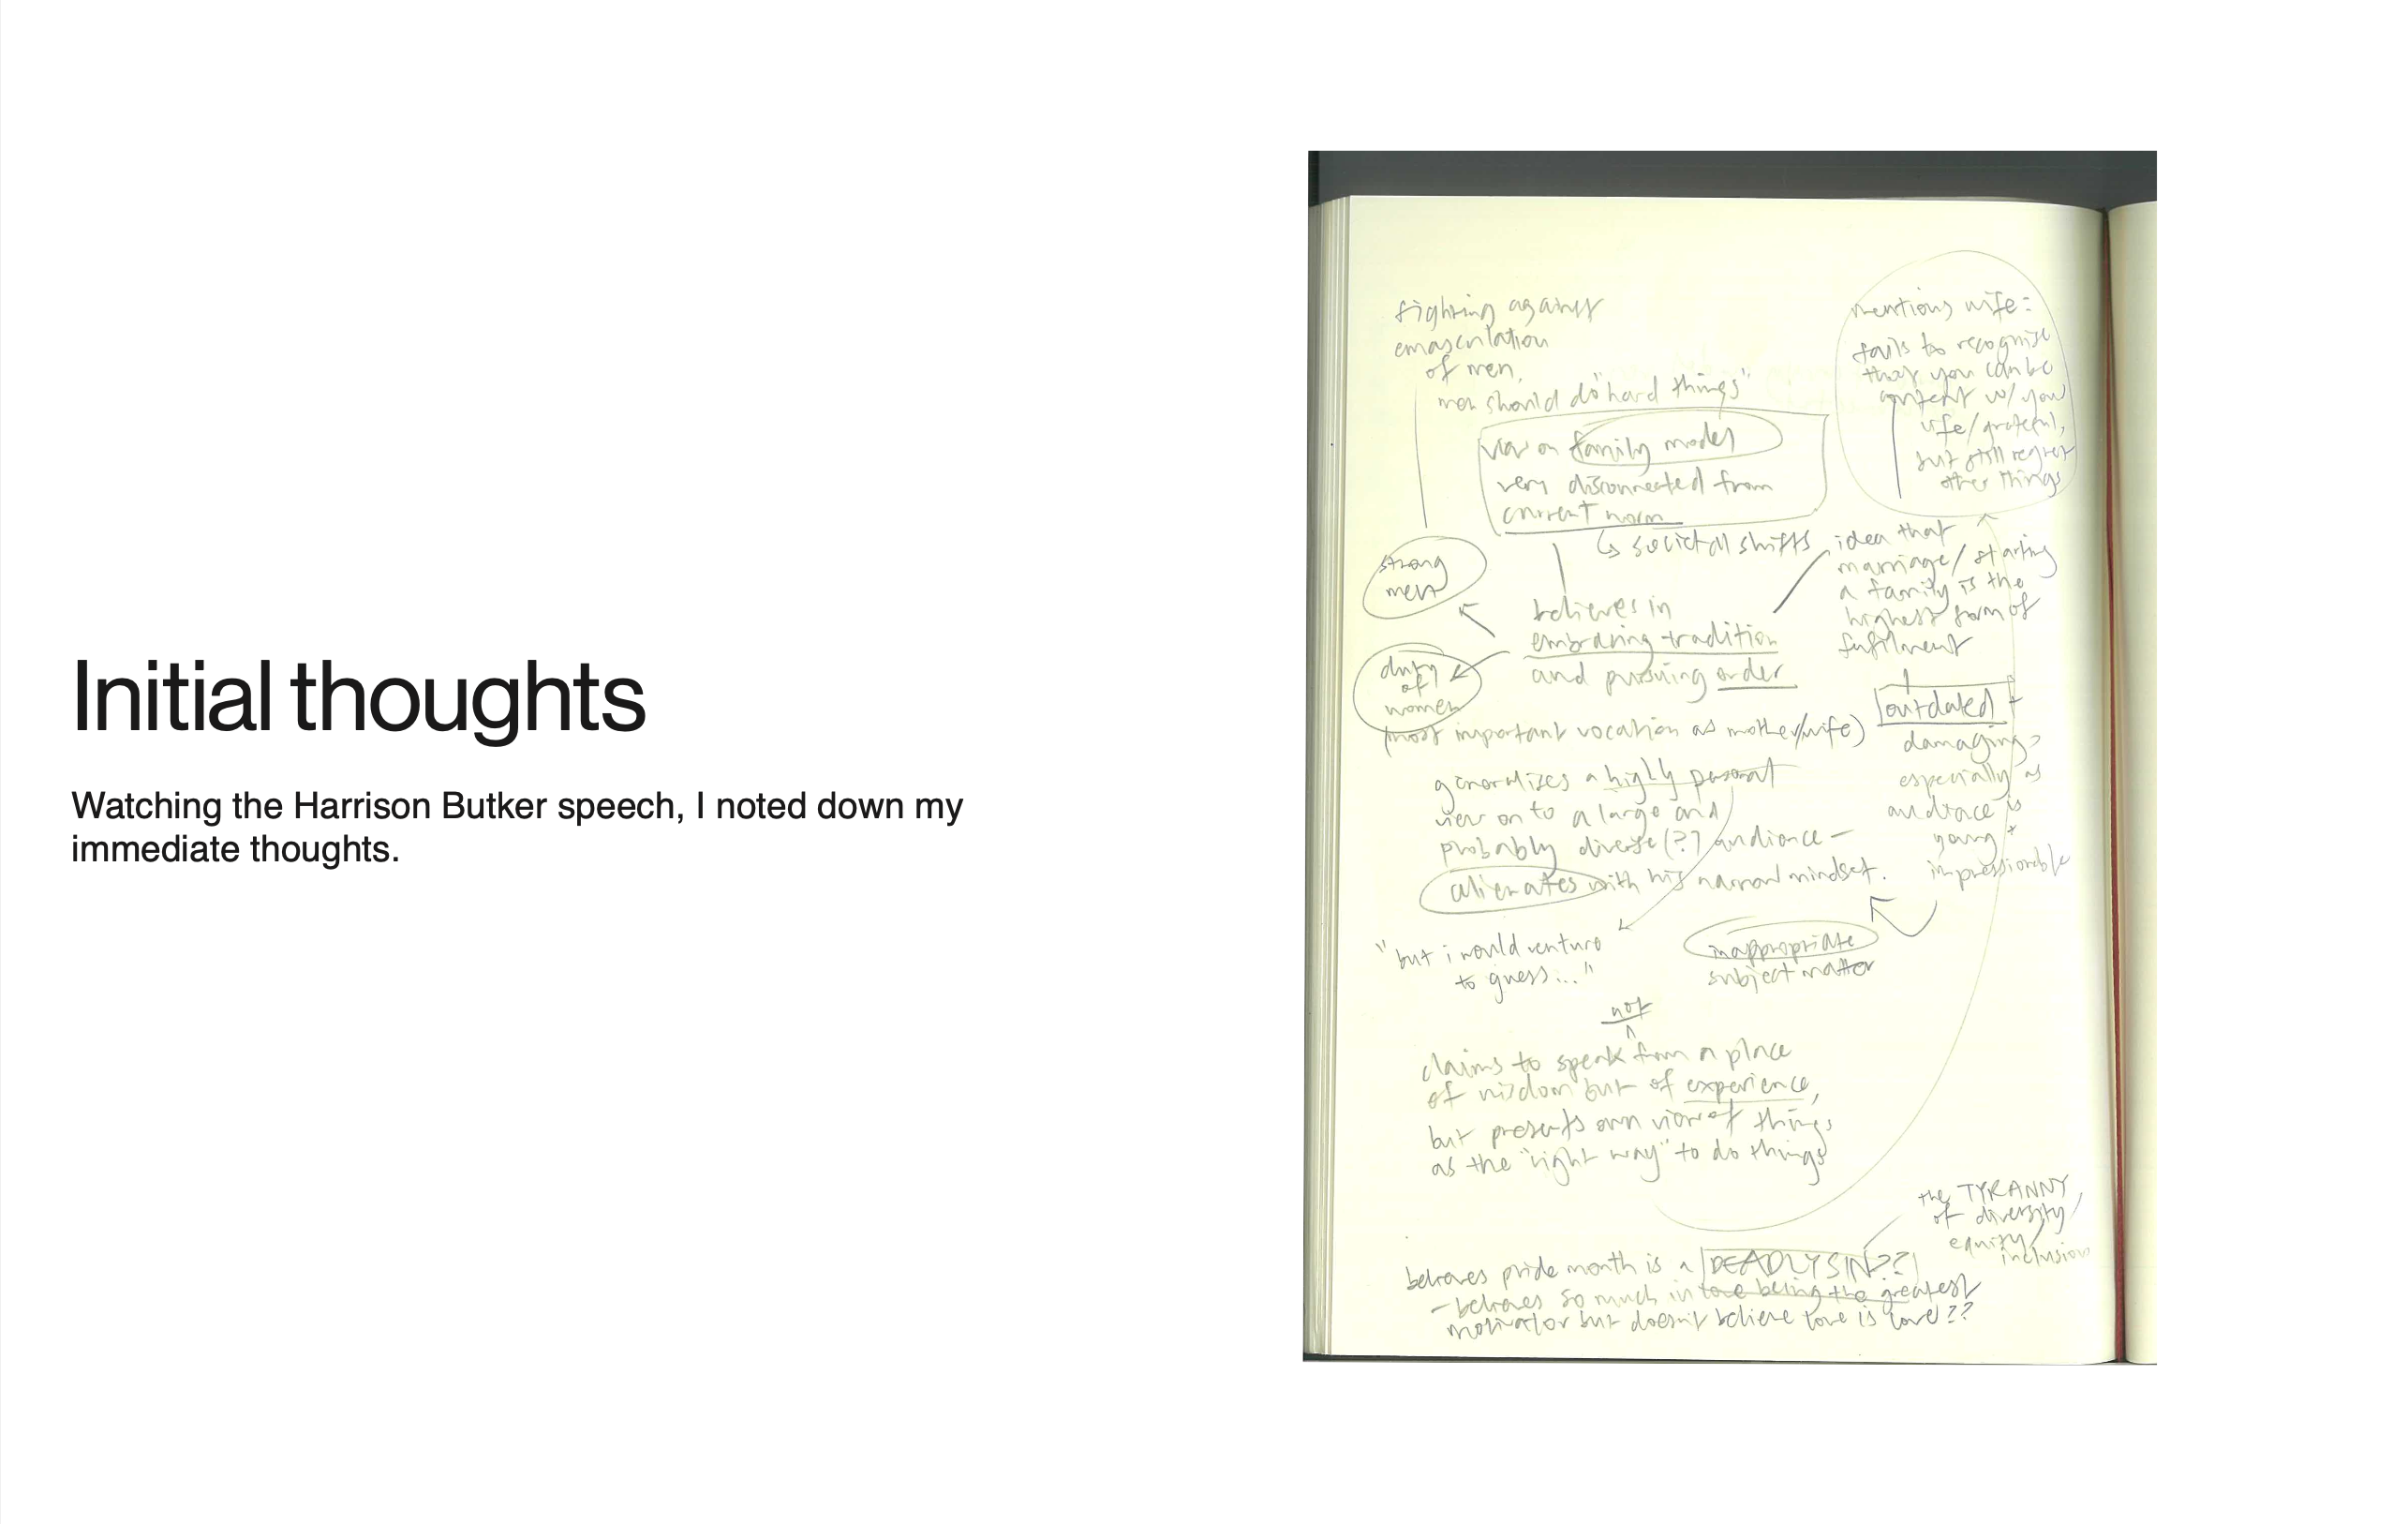 Initial thoughts
Watching the Harrison Butker speech, I noted down my
immediate thoughts.
fighting against
emasculation
of men.
men should do "hard things"
view on family model
very disconnected from
current norm
↳ societal shifts
mentions wife:
fails to recognise
that you can be
content w/ your
wife/grateful,
but still regret
other things
strong
men
believes in
embracing tradition
and pursuing order
idea that
marriage/starting
a family is the
highest form of
fulfilment
duty
of
women
(most important vocation as mother/wife)
outdated +
damaging,
especially as
audience is
young +
impressionable
generalizes a highly personal
view on to a large and
probably diverse (?) audience –
alienates with his narrow mindset.
"but i would venture
to guess..."
inappropriate
subject matter
not
claims to speak ^ from a place
of wisdom but of experience,
but presents own view of things
as the "right way" to do things
the TYRANNY
of diversity,
equity,
inclusion
believes pride month is a DEADLY SIN??
– believes so much in love being the greatest
motivator but doesn't believe love is love??